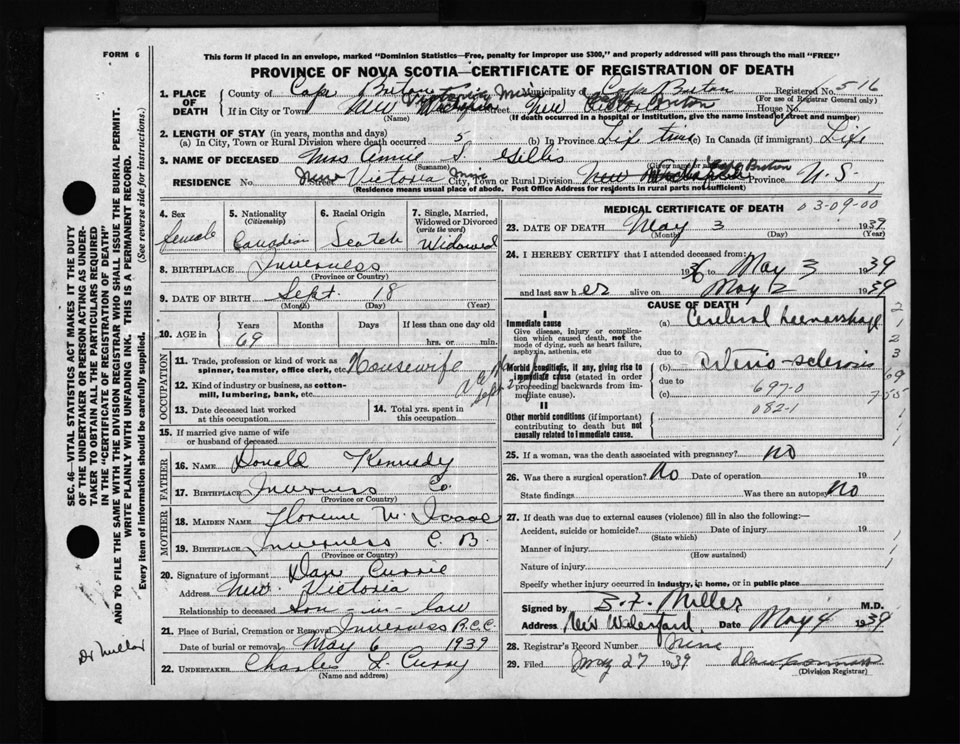 FORM 6
This form if placed in an envelope, marked "Dominion Statistics—Free, penalty for improper use $300," and properly addressed will pass through the mail "FREE"
PROVINCE OF NOVA SCOTIA—CERTIFICATE OF REGISTRATION OF DEATH
1. PLACE OF DEATH
County of Cape Breton Municipality of Cape Breton Registered No. 516
(For use of Registrar General only)
If in City or Town New Street New House No.
(Name) (If death occurred in a hospital or institution, give the name instead of street and number)
2. LENGTH OF STAY (in years, months and days)
(a) In City, Town or Rural Division where death occurred 5 (b) In Province Life time (c) In Canada (if immigrant) Life
3. NAME OF DECEASED Mrs Annie S. Gillis
(Surname)
RESIDENCE No. Street New Victoria City, Town or Rural Division New Province N. S.
(Residence means usual place of abode. Post Office Address for residents in rural parts not sufficient)
4. Sex female
5. Nationality (Citizenship) Canadian
6. Racial Origin Scotch
7. Single, Married, Widowed or Divorced (write the word) Widowed
8. BIRTHPLACE Inverness
(Province or Country)
9. DATE OF BIRTH Sept. 18
(Month) (Day) (Year)
10. AGE in Years Months Days If less than one day
69 hrs. or min.
OCCUPATION
11. Trade, profession or kind of work as spinner, teamster, office clerk, etc. Housewife
12. Kind of industry or business, as cotton-mill, lumbering, bank, etc.
13. Date deceased last worked at this occupation
14. Total yrs. spent in this occupation
15. If married give name of wife or husband of deceased
FATHER
16. NAME Donald Kennedy
17. BIRTHPLACE Inverness Co.
(Province or Country)
MOTHER
18. MAIDEN NAME Florence
19. BIRTHPLACE Inverness C. B.
(Province or Country)
20. Signature of informant Dan Currie
Address New Victoria
Relationship to deceased Son-in-law
21. Place of Burial, Cremation or Removal Inverness R.C.C.
Date of burial or removal May 6 1939
22. UNDERTAKER Charles L. Curry
(Name and address)
MEDICAL CERTIFICATE OF DEATH 03-09-00
23. DATE OF DEATH May 3 1939
(Month) (Day) (Year)
24. I HEREBY CERTIFY that I attended deceased from:
1936 to May 3 1939
and last saw her alive on May 2 1939
CAUSE OF DEATH
I
Immediate cause
Give disease, injury or complication which caused death, not the mode of dying, such as heart failure, asphyxia, asthenia, etc
(a) Cerebral haemorrhage
due to
Morbid conditions, if any, giving rise to immediate cause (stated in order proceeding backwards from immediate cause).
(b) Arterio-sclerosis
due to 697-0
(c)
082-1
II
Other morbid conditions (if important) contributing to death but not causally related to immediate cause.
25. If a woman, was the death associated with pregnancy? no
26. Was there a surgical operation? No Date of operation 19
State findings Was there an autopsy No
27. If death was due to external causes (violence) fill in also the following:—
Accident, suicide or homicide? Date of injury 19
(State which)
Manner of injury
(How sustained)
Nature of injury
Specify whether injury occurred in industry, in home, or in public place
Signed by Miller M.D.
Address New Waterford. Date May 4 1939
28. Registrar's Record Number Nine
29. Filed May 27 1939
(Division Registrar)
SEC. 46—VITAL STATISTICS ACT MAKES IT THE DUTY OF THE UNDERTAKER OR PERSON ACTING AS UNDERTAKER TO OBTAIN ALL THE PARTICULARS REQUIRED IN THE "CERTIFICATE OF REGISTRATION OF DEATH" AND TO FILE THE SAME WITH THE DIVISION REGISTRAR WHO SHALL ISSUE THE BURIAL PERMIT.
WRITE PLAINLY WITH UNFADING INK. THIS IS A PERMANENT RECORD.
Every item of information should be carefully supplied. (See reverse side for instructions.)
Dr Miller